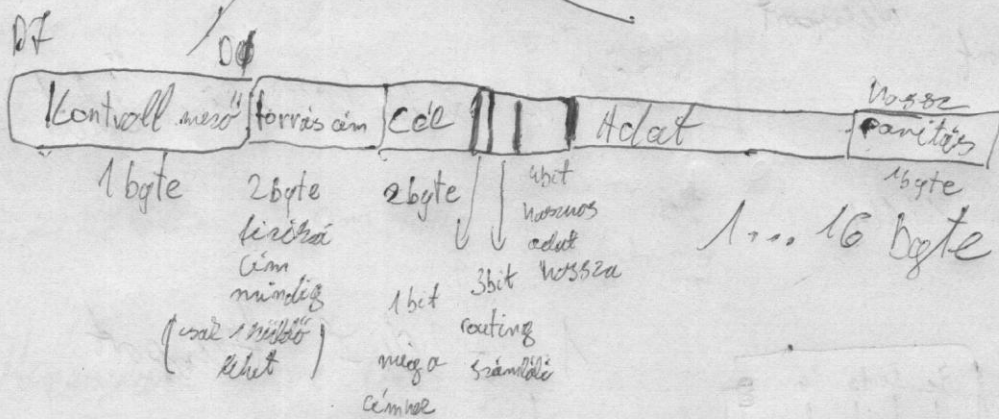 D7
D0
Kontroll mező
forrás cím
Cél
Adat
hossz
paritás
1 byte
2 byte
2 byte
1 byte
fizikai
cím
mindig
(csak 1 küldő
lehet)
1 bit
még a
címhez
3 bit
routing
számláló
4 bit
hasznos
adat
hossza
1 . . . . 16 Byte